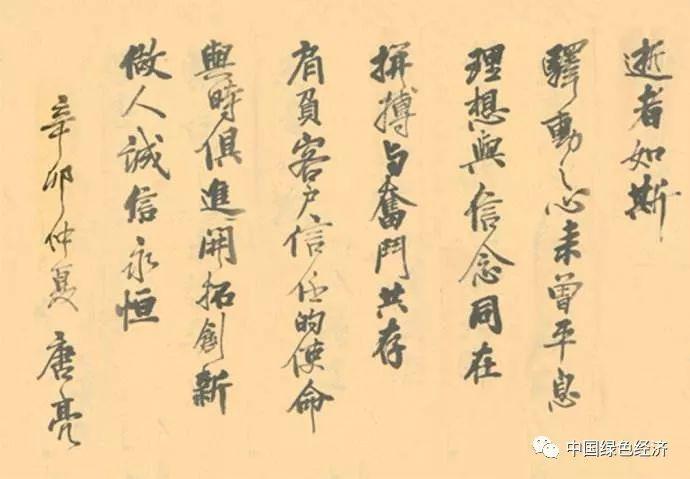 逝者如斯
驛動之心未曾平息
理想與信念同在
拼搏与奮鬥共存
肩負客户信任的使命
與時俱進開拓創新
做人誠信永恒
辛卯仲夏 唐亮
中国绿色经济